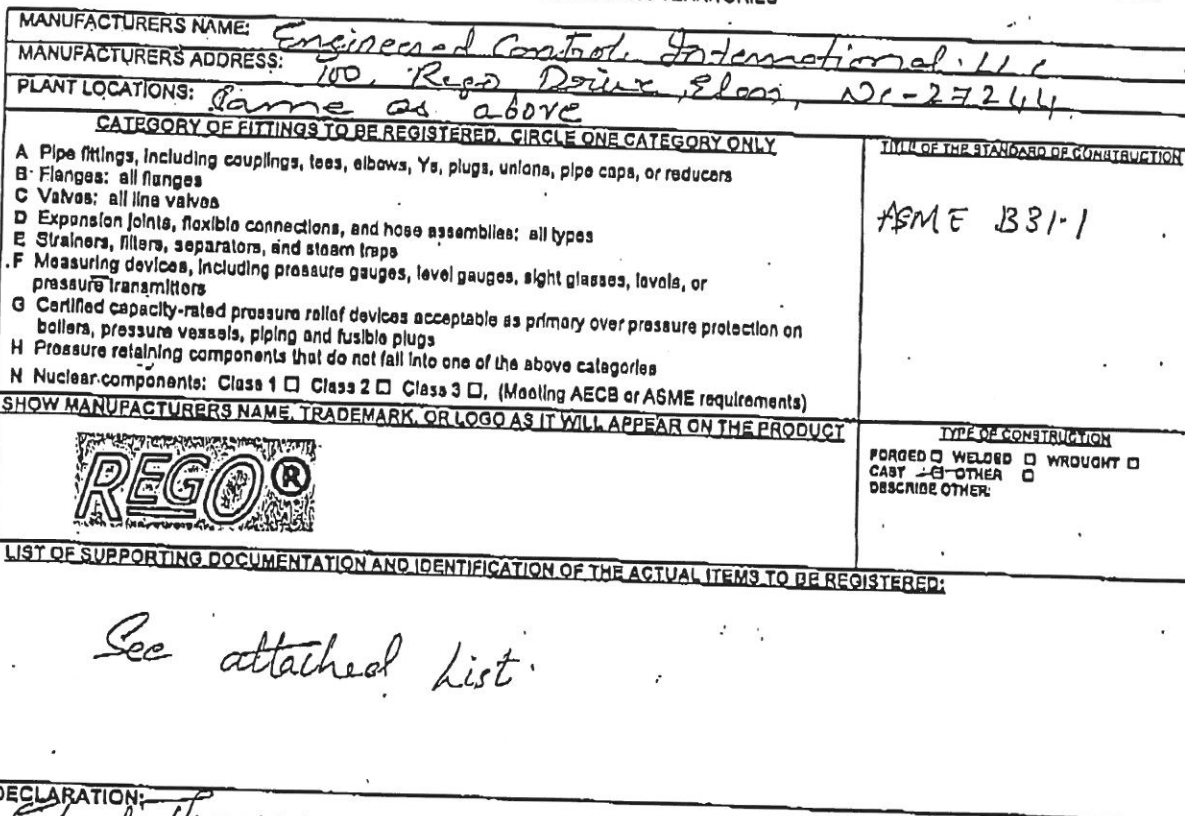 MANUFACTURERS NAME: Engineered Controls International. LLC
MANUFACTURERS ADDRESS: 100, Rego Drive, Elon, NC-27244.
PLANT LOCATIONS: Same as above
CATEGORY OF FITTINGS TO BE REGISTERED. CIRCLE ONE CATEGORY ONLY
A Pipe fittings, including couplings, tees, elbows, Ys, plugs, unions, pipe caps, or reducers
B Flanges: all flanges
C Valves: all line valves
D Expansion joints, flexible connections, and hose assemblies: all types
E Strainers, filters, separators, and steam traps
F Measuring devices, including pressure gauges, level gauges, sight glasses, levels, or
pressure transmitters
G Certified capacity-rated pressure relief devices acceptable as primary over pressure protection on
boilers, pressure vessels, piping and fusible plugs
H Pressure retaining components that do not fall into one of the above categories
N Nuclear components: Class 1 ☐ Class 2 ☐ Class 3 ☐, (Meeting AECB or ASME requirements)
TITLE OF THE STANDARD OF CONSTRUCTION
ASME B31.1
SHOW MANUFACTURERS NAME, TRADEMARK, OR LOGO AS IT WILL APPEAR ON THE PRODUCT
REGO®
TYPE OF CONSTRUCTION
FORGED ☐ WELDED ☐ WROUGHT ☐
CAST ☐ OTHER ☐
DESCRIBE OTHER:
LIST OF SUPPORTING DOCUMENTATION AND IDENTIFICATION OF THE ACTUAL ITEMS TO BE REGISTERED:
See attached List.
DECLARATION: